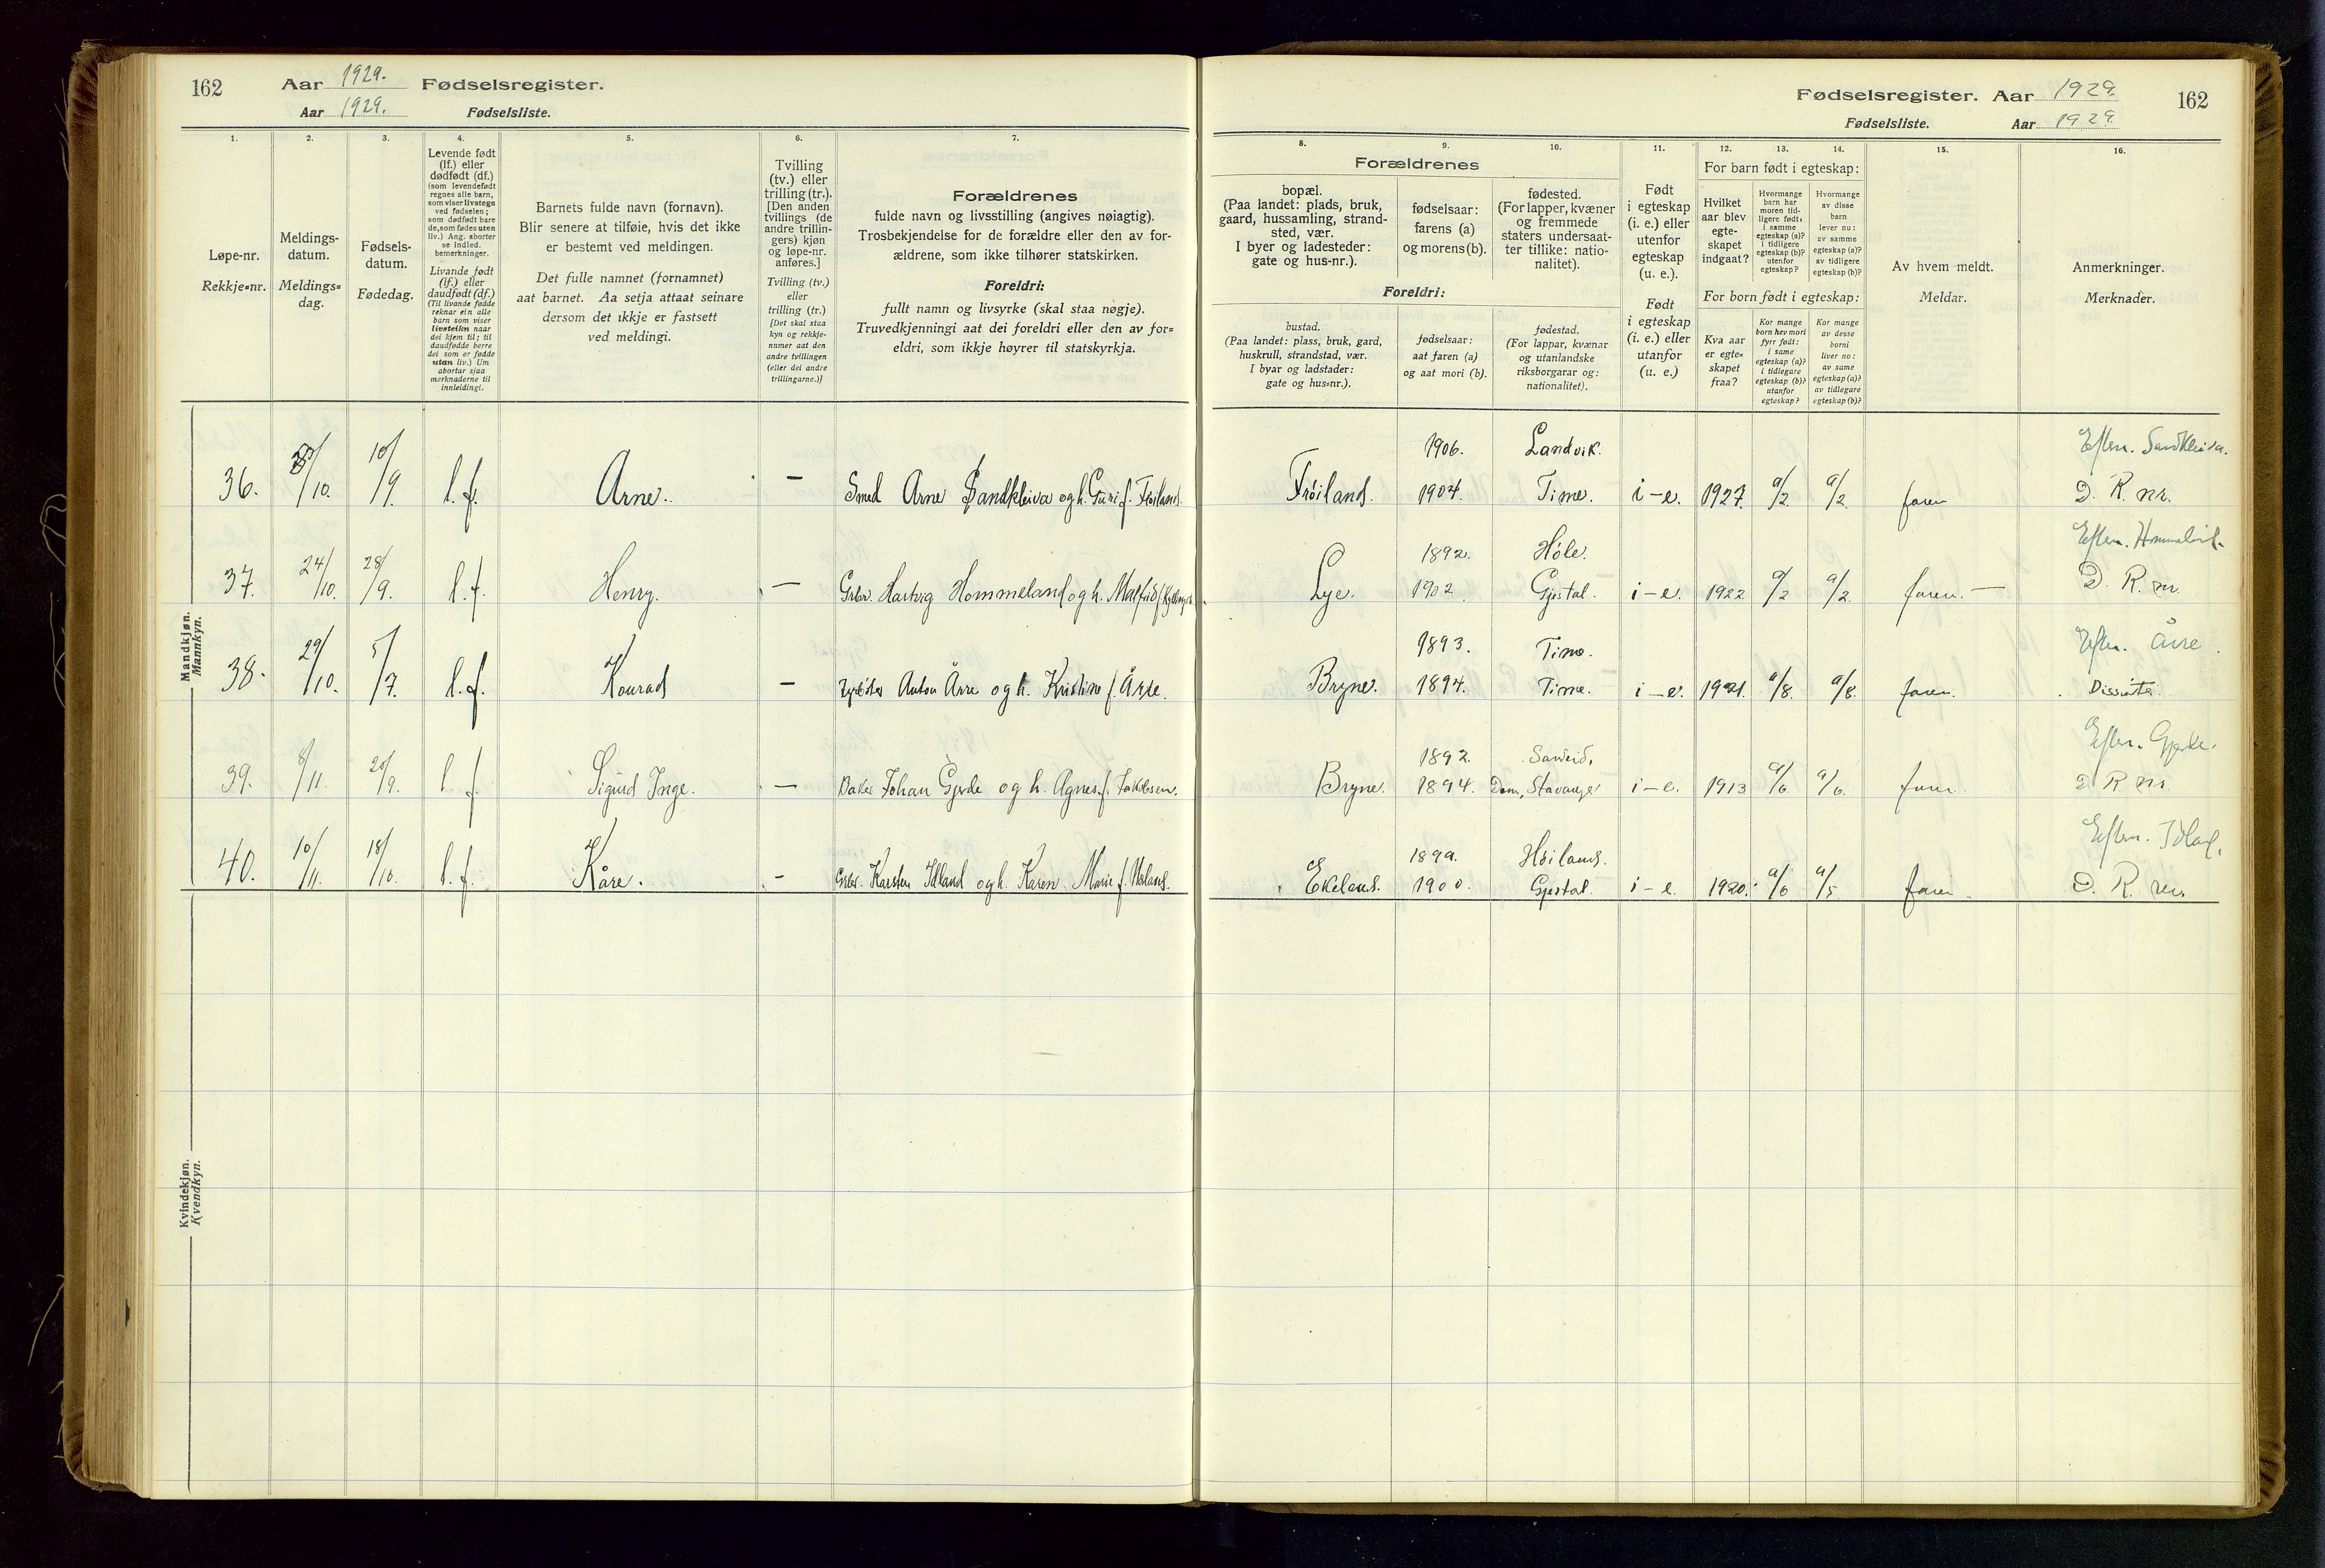 162
Aar 1929. Fødselsregister.
Aar 1929. Fødselsliste.
Fødselsregister. Aar 1929.
162
Fødselsliste. Aar 1929.
1.
Løpe-nr.
Rekkje=nr.
2.
Meldings-
datum.
Meldings=
dag.
3.
Fødsels-
datum.
Fødedag.
4.
Levende født
(lf.) eller
dødfødt (df.)
(som levendefødt
regnes alle barn,
som viser livstegn
ved fødselen;
som dødfødt bare
de, som fødes uten
liv.) Ang. aborter
se indled.
bemerkninger.
Livande født
(lf.) eller
daudfødt (df.)
(Til livande fødde
reknar ein alle
barn som viser
livsteikn naar
dei kjem til; til
daudfødde berre
dei som er fødde
utan liv.) Um
abortar sjaa
merknaderne til
innleidingi.
5.
Barnets fulde navn (fornavn).
Blir senere at tilføie, hvis det ikke
er bestemt ved meldingen.
Det fulle namnet (fornamnet)
aat barnet. Aa setja attaat seinare
dersom det ikkje er fastsett
ved meldingi.
6.
Tvilling
(tv.) eller
trilling (tr.).
[Den anden
tvillings (de
andre trillin-
gers) kjøn
og løpe-nr.
anføres.]
Tvilling (tv.)
eller
trilling (tr.)
[Det skal staa
kyn og rekkje-
nummer aat den
andre tvillingen
(eller dei andre
trillingarne.)]
7.
Forældrenes
fulde navn og livsstilling (angives nøiagtig).
Trosbekjendelse for de forældre eller den av for-
ældrene, som ikke tilhører statskirken.
Foreldri:
fullt namn og livsyrke (skal staa nøgje).
Truvedkjenningi aat dei foreldri eller den av for=
eldri, som ikkje høyrer til statskyrkja.
8.
Forældrenes
bopæl.
(Paa landet: plads, bruk,
gaard, hussamling, strand-
sted, vær.
I byer og ladesteder:
gate og hus-nr.).
Foreldri:
bustad.
(Paa landet: plass, bruk, gard,
huskrull, strandstad, vær.
I byar og ladstader:
gate og hus=nr.).
9.
fødselsaar:
farens (a)
og morens (b).
fødselsaar:
aat faren (a)
og aat mori (b).
10.
fødested.
(For lapper, kvæner
og fremmede
staters undersaat-
ter tillike: natio-
nalitet).
fødestad.
(For lappar, kvænar
og utanlandske
riksborgarar og:
nationalitet).
11.
Født
i egteskap
(i. e.) eller
utenfor
egteskap
(u. e.).
Født
i egteskap
(i. e.) eller
utanfor
(u. e.)
12. 13. 14.
For barn født i egteskap:
Hvilket
aar blev
egte-
skapet
indgaat?
Hvormange
barn har
moren tid-
ligere født:
i samme
egteskap (a)?
i tidligere
egteskap (b)?
utenfor
egteskap?
Hvormange
av disse
barn
lever nu:
av samme
egteskap (a)?
av tidligere
egteskap (b)?
For born født i egteskap:
Kva aar
er egte=
skapet
fraa?
Kor mange
born hev mori
fyrr født:
i same
egteskap (a)?
i tidlegare
egteskap (b)?
utanfor
egteskap?
Kor mange
av desse
borni
liver no:
av same
egteskap (a)?
av tidlegare
egteskap (b)?
15.
Av hvem meldt.
Meldar.
16.
Anmerkninger.
Merknader.
Mandkjøn.
Mannkyn.
36. /10. 10/9. l.f. Arne. – Smed Arne Sandkleiva og h. Guri f. Frøiland. Frøiland. 1906. 1904. Landvik. Time. i-e. 1927. a/2. a/2. faren Eftern. Sandkleiva. D. R. nr.
37. 24/10. 28/9. l.f. Henry. – Grbr. Hartvig Hommeland og h. Malfrid f. Lye. 1892. 1902. Høle. Gjestal. i-e. 1922. a/2 a/2. faren. – Eftern. D. R. nr.
38. 29/10. 5/7. l.f. Konrad – Anton Årre og h. Kristine f. Årre. Bryne. 1893. 1894. Time. Time. i-e. 1921. a/8. a/8. faren. Eftern. Årre. Dissenter.
39. 8/11. 20/9. l.f. Sigurd Inge. – Baker Johan Gjerde og h. Agnes f. Jakobsen. Bryne. 1892. 1894. Sandeid. Dom, Stavanger i-e. 1913 a/6 a/6. faren Eftern. Gjerde. D R nr.
40. 10/11. 18/10. l.f. Kåre. – Grbr. Karsten Idland og h. Karen Marie f. Ekeland. 1899. 1900. Høiland. Gjestal. i-e. 1920. a/6 a/5. faren Eftern. Idland. D. R. nr.
Kvindekjøn.
Kvendkyn.